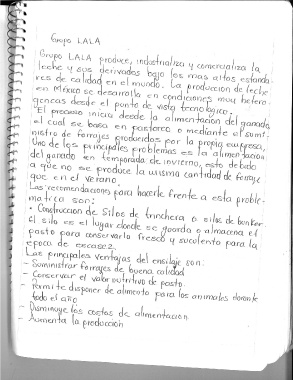 Grupo LALA
Grupo LALA produce, industrializa y comercializa la
leche y sus derivados bajo los mas altos estanda-
res de calidad en el mundo. La produccion de leche
en México se desarrolla en condiciones muy hetero-
geneas desde el punto de vista tecnologico.
El proceso inicia desde la alimentacion del ganado
el cual se basa en pastoreo o mediante el sumi-
nistro de forrajes producidos por la propia empresa,
Uno de los principales problemas es la alimentación
del ganado en temporada de invierno, esto debido
a que no se produce la misma cantidad de forraje
que en el verano.
Las recomendaciones para hacerle frente a esta proble-
matica son:
• Construccion de Silos de trinchera o silos de bunker
El silo es el lugar donde se guarda o almacena el
pasto para conservarlo fresco y suculento para la
epoca de escasez.
Las principales ventajas del ensilaje son:
- Suministrar forrajes de buena calidad
- Conservar el valor nutritivo de pasto.
- Permite disponer de alimento para los animales durante
todo el año
- Disminuye los costos de alimentacion
- Aumenta la produccion